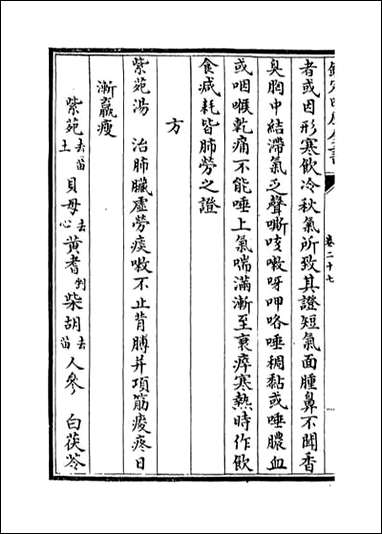 卷二十七
者或因形寒飲冷秋氣所致其證短氣面腫鼻不聞香
臭胸中結滯氣乏聲嘶咳嗽呀呷咯唾稠黏或唾膿血
或咽喉乾痛不能唾上氣喘滿漸至衰瘁寒熱時作飲
食減耗皆肺勞之證
方
紫菀湯 治肺臟虛勞痰嗽不止背膊并項筋痠疼日
漸羸瘦
紫菀去苗土 貝母去心 黃耆剉 柴胡去苗 人參 白茯苓